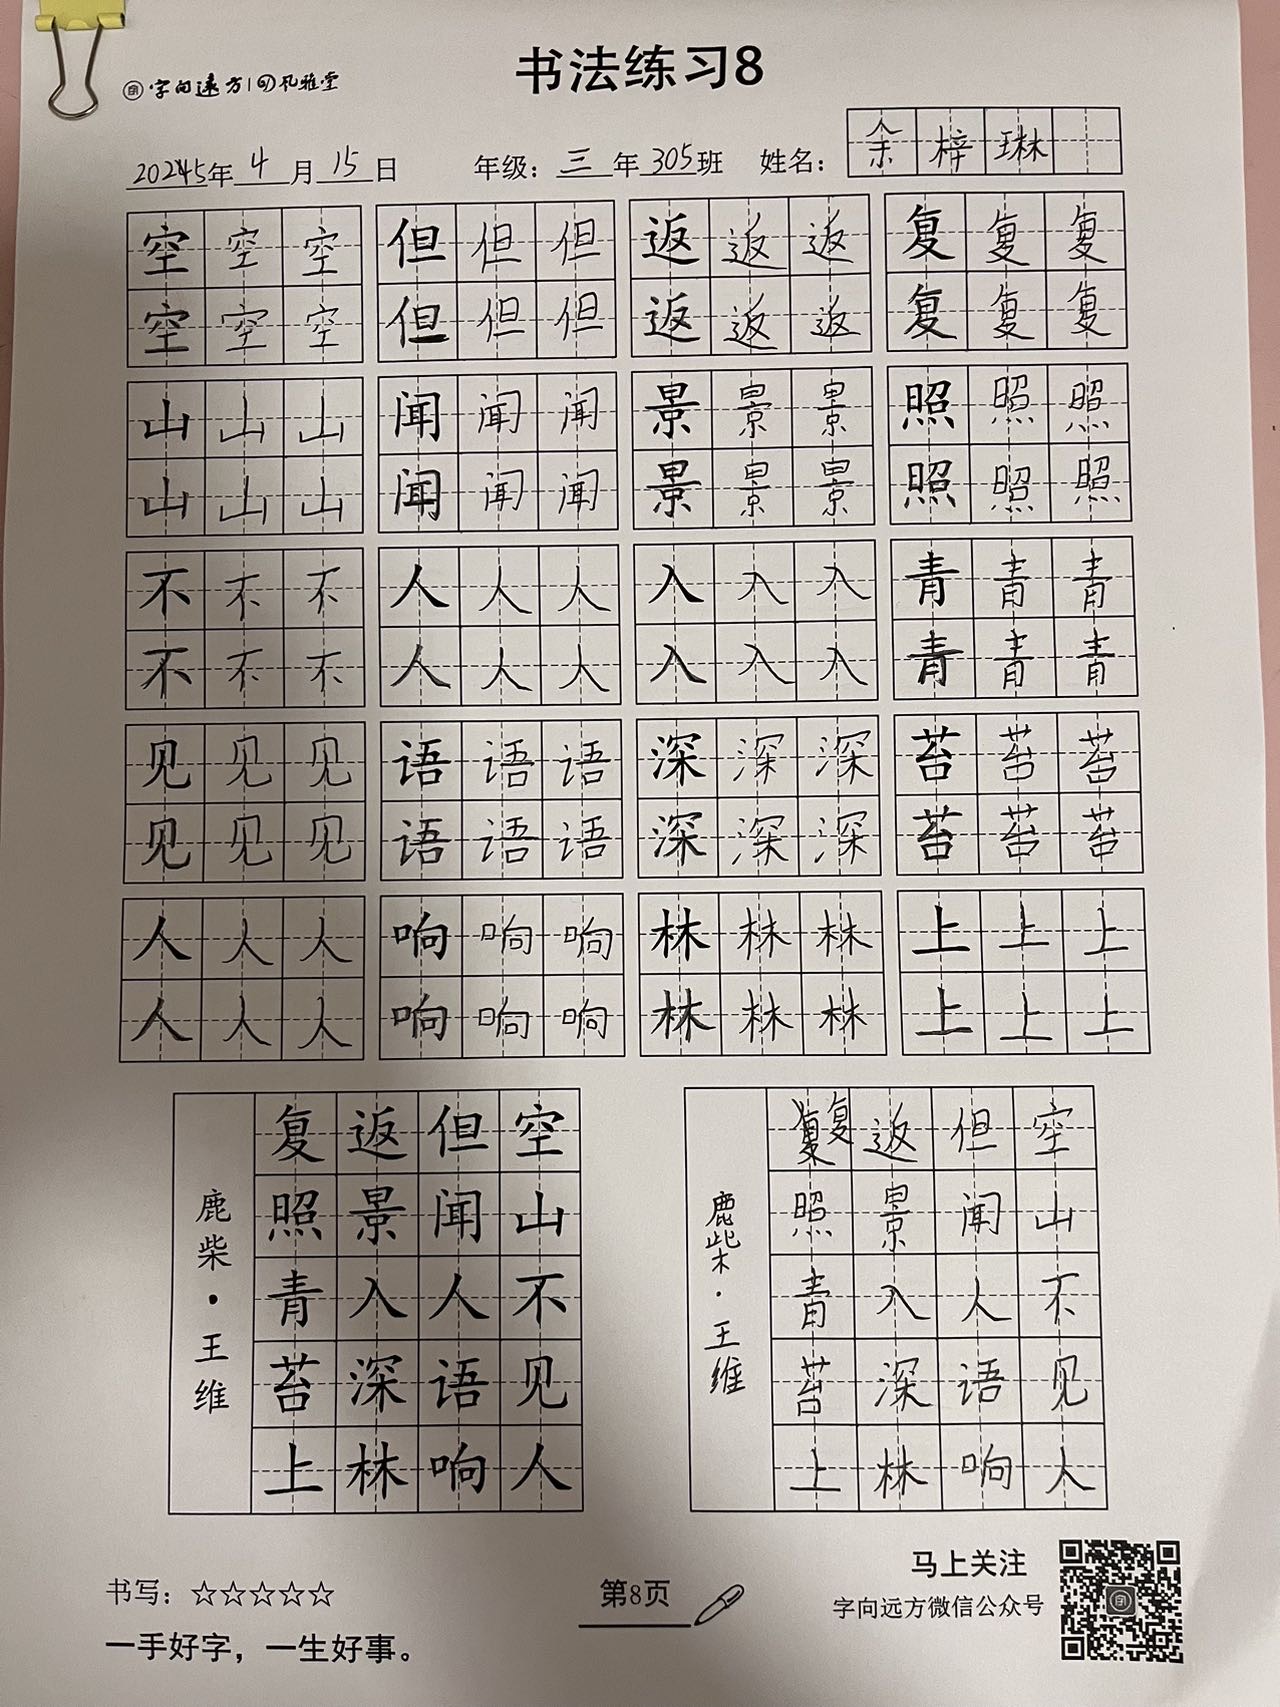 书法练习8
字向远方 风雅堂
20245年4月15日 年级：三年305班 姓名：余梓琳
空空空 但但但 返返返 复复复
空空空 但但但 返返返 复复复
山山山 闻闻闻 景景景 照照照
山山山 闻闻闻 景景景 照照照
不不不 人人人 入入入 青青青
不不不 人人人 入入入 青青青
见见见 语语语 深深深 苔苔苔
见见见 语语语 深深深 苔苔苔
人人人 响响响 林林林 上上上
人人人 响响响 林林林 上上上
空山不见人
但闻人语响
返景入深林
复照青苔上
鹿柴·王维
空山不见人
但闻人语响
返景入深林
复照青苔上
鹿柴·王维
书写：☆☆☆☆☆
一手好字，一生好事。
第8页
马上关注
字向远方微信公众号